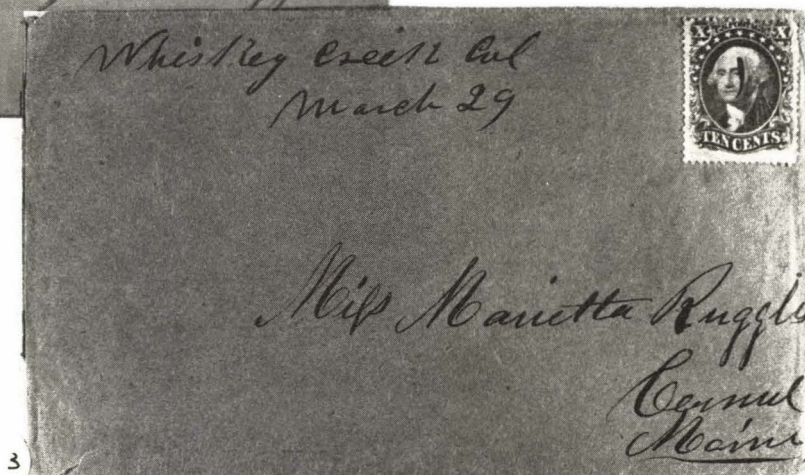 Whiskey Creek Cal
March 29
X X
TEN CENTS
Miss Marietta Ruggl
Carmel
Maine
3